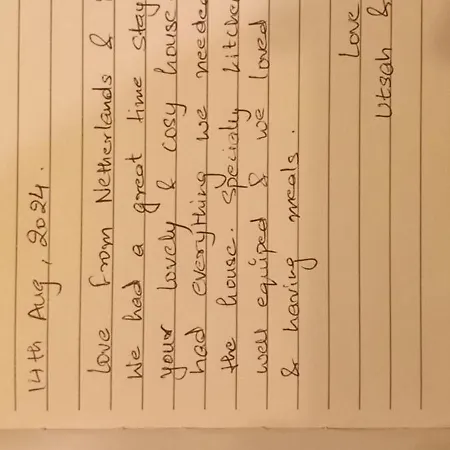 14th Aug, 2024.
Love from Netherlands &
We had a great time stay
your lovely & cosy house.
had everything we neede
the house. specially kitche
well equiped & we loved
& having meals.
Love
Utsah &